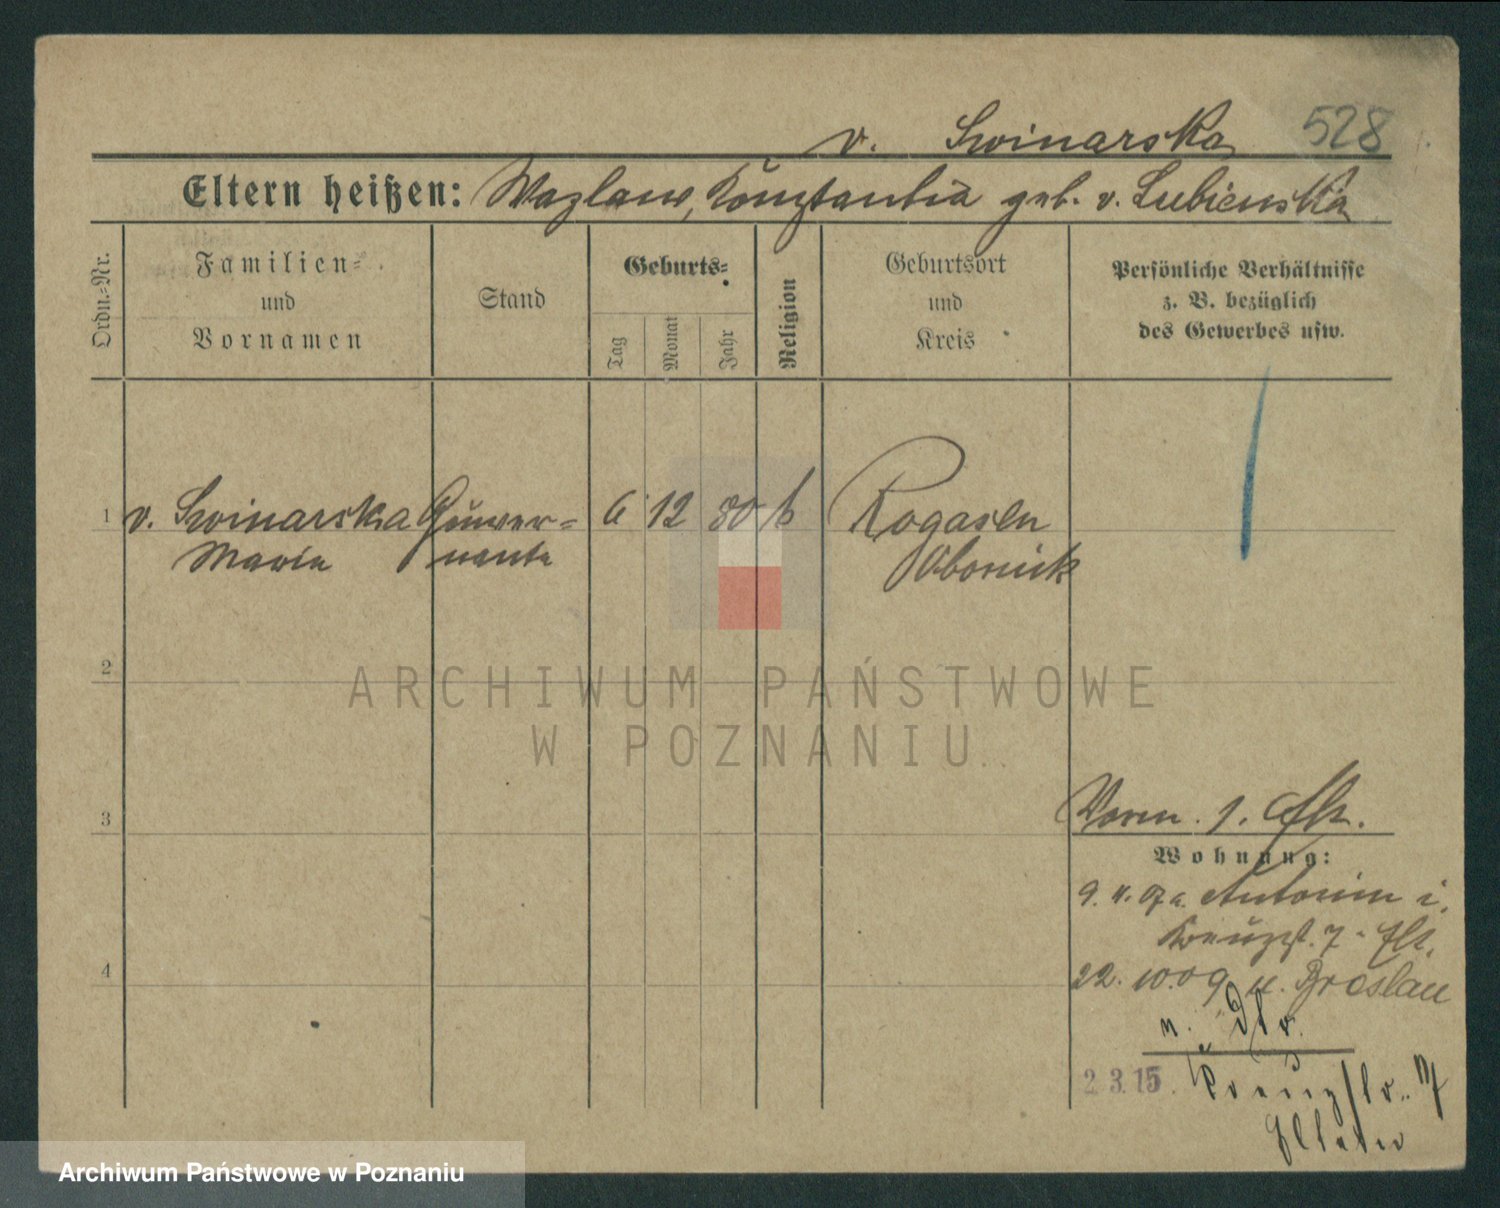 528
v. Swinarska
Eltern heißen: Wazlaw, Konstantia geb. v. Lubienska
Ordn.-Nr.
Familien-
und
Vornamen
Stand
Geburts-
Tag
Monat
Jahr
Religion
Geburtsort
und
Kreis
Persönliche Verhältnisse
z. B. bezüglich
des Gewerbes usw.
1 v. Swinarska Guver- 6 12 80 k Rogasen
Maria nante Obornick
2
ARCHIWUM PAŃSTWOWE
W POZNANIU
3
Vorm. 1.
Wohnung:
9. 4. 07 a. Antonin i.
Kreuzst. 7.
4
22. 10.09 n. Breslau
n.
2.3.15. Kreuzstr. 7
Eltern
Archiwum Państwowe w Poznaniu